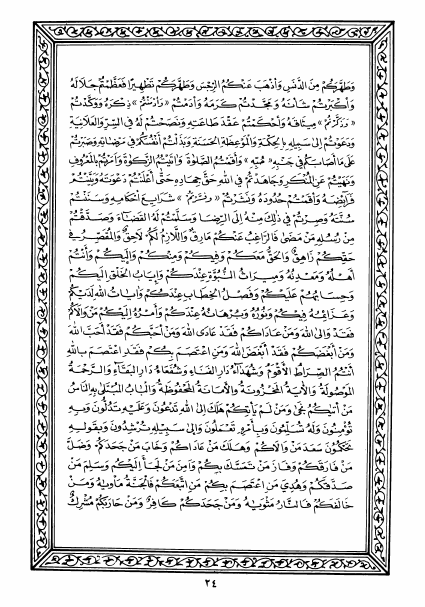 وَطَهَّرَكُمْ مِنَ الدَّنَسِ وَأَذْهَبَ عَنْكُمُ الرِّجْسَ وَطَهَّرَكُمْ تَطْهِيرًا فَعَظَّمْتُمْ جَلَالَهُ
وَأَكْبَرْتُمْ شَأْنَهُ وَمَجَّدْتُمْ كَرَمَهُ وَأَدَمْتُمْ «وَأَدْمَنْتُمْ» ذِكْرَهُ وَوَكَّدْتُمْ
«وَذَكَّرْتُمْ» مِيثَاقَهُ وَأَحْكَمْتُمْ عَقْدَ طَاعَتِهِ وَنَصَحْتُمْ لَهُ فِي السِّرِّ وَالْعَلَانِيَةِ
وَدَعَوْتُمْ إِلَى سَبِيلِهِ بِالْحِكْمَةِ وَالْمَوْعِظَةِ الْحَسَنَةِ وَبَذَلْتُمْ أَنْفُسَكُمْ فِي مَرْضَاتِهِ وَصَبَرْتُمْ
عَلَى مَا أَصَابَكُمْ فِي جَنْبِهِ «حُبِّهِ» وَأَقَمْتُمُ الصَّلَوٰةَ وَآتَيْتُمُ الزَّكَوٰةَ وَأَمَرْتُمْ بِالْمَعْرُوفِ
وَنَهَيْتُمْ عَنِ الْمُنْكَرِ وَجَاهَدْتُمْ فِي اللهِ حَقَّ جِهَادِهِ حَتَّى أَعْلَنْتُمْ دَعْوَتَهُ وَبَيَّنْتُمْ
فَرَائِضَهُ وَأَقَمْتُمْ حُدُودَهُ وَنَشَرْتُمْ «وَفَسَّرْتُمْ» شَرَايِعَ أَحْكَامِهِ وَسَنَنْتُمْ
سُنَّتَهُ وَصِرْتُمْ فِي ذٰلِكَ مِنْهُ إِلَى الرِّضَا وَسَلَّمْتُمْ لَهُ الْقَضَاءَ وَصَدَّقْتُمْ
مِنْ رُسُلِهِ مَنْ مَضَى فَالرَّاغِبُ عَنْكُمْ مَارِقٌ وَاللَّازِمُ لَكُمْ لَاحِقٌ وَالْمُقَصِّرُ فِي
حَقِّكُمْ زَاهِقٌ وَالْحَقُّ مَعَكُمْ وَفِيكُمْ وَمِنْكُمْ وَإِلَيْكُمْ وَأَنْتُمْ
أَهْلُهُ وَمَعْدِنُهُ وَمِيرَاثُ النُّبُوَّةِ عِنْدَكُمْ وَإِيَابُ الْخَلْقِ إِلَيْكُمْ
وَحِسَابُهُمْ عَلَيْكُمْ وَفَصْلُ الْخِطَابِ عِنْدَكُمْ وَآيَاتُ اللهِ لَدَيْكُمْ
وَعَزَائِمُهُ فِيكُمْ وَنُورُهُ وَبُرْهَانُهُ عِنْدَكُمْ وَأَمْرُهُ إِلَيْكُمْ مَنْ وَالَاكُمْ
فَقَدْ وَالَى اللهَ وَمَنْ عَادَاكُمْ فَقَدْ عَادَى اللهَ وَمَنْ أَحَبَّكُمْ فَقَدْ أَحَبَّ اللهَ
وَمَنْ أَبْغَضَكُمْ فَقَدْ أَبْغَضَ اللهَ وَمَنِ اعْتَصَمَ بِكُمْ فَقَدِ اعْتَصَمَ بِاللهِ
أَنْتُمُ الصِّرَاطُ الْأَقْوَمُ وَشُهَدَاءُ دَارِ الْفَنَاءِ وَشُفَعَاءُ دَارِ الْبَقَاءِ وَالرَّحْمَةُ
الْمَوْصُولَةُ وَالْآيَةُ الْمَخْزُونَةُ وَالْأَمَانَةُ الْمَحْفُوظَةُ وَالْبَابُ الْمُبْتَلَى بِهِ النَّاسُ
مَنْ أَتَاكُمْ نَجَى وَمَنْ لَمْ يَأْتِكُمْ هَلَكَ إِلَى اللهِ تَدْعُونَ وَعَلَيْهِ تَدُلُّونَ وَبِهِ
تُؤْمِنُونَ وَلَهُ تُسَلِّمُونَ وَبِأَمْرِهِ تَعْمَلُونَ وَإِلَى سَبِيلِهِ تُرْشِدُونَ وَبِقَوْلِهِ
تَحْكُمُونَ سَعِدَ مَنْ وَالَاكُمْ وَهَلَكَ مَنْ عَادَاكُمْ وَخَابَ مَنْ جَحَدَكُمْ وَضَلَّ
مَنْ فَارَقَكُمْ وَفَازَ مَنْ تَمَسَّكَ بِكُمْ وَأَمِنَ مَنْ لَجَأَ إِلَيْكُمْ وَسَلِمَ مَنْ
صَدَّقَكُمْ وَهُدِيَ مَنِ اعْتَصَمَ بِكُمْ مَنِ اتَّبَعَكُمْ فَالْجَنَّةُ مَأْوَاهُ وَمَنْ
خَالَفَكُمْ فَالنَّارُ مَثْوَاهُ وَمَنْ جَحَدَكُمْ كَافِرٌ وَمَنْ حَارَبَكُمْ مُشْرِكٌ
٢٤